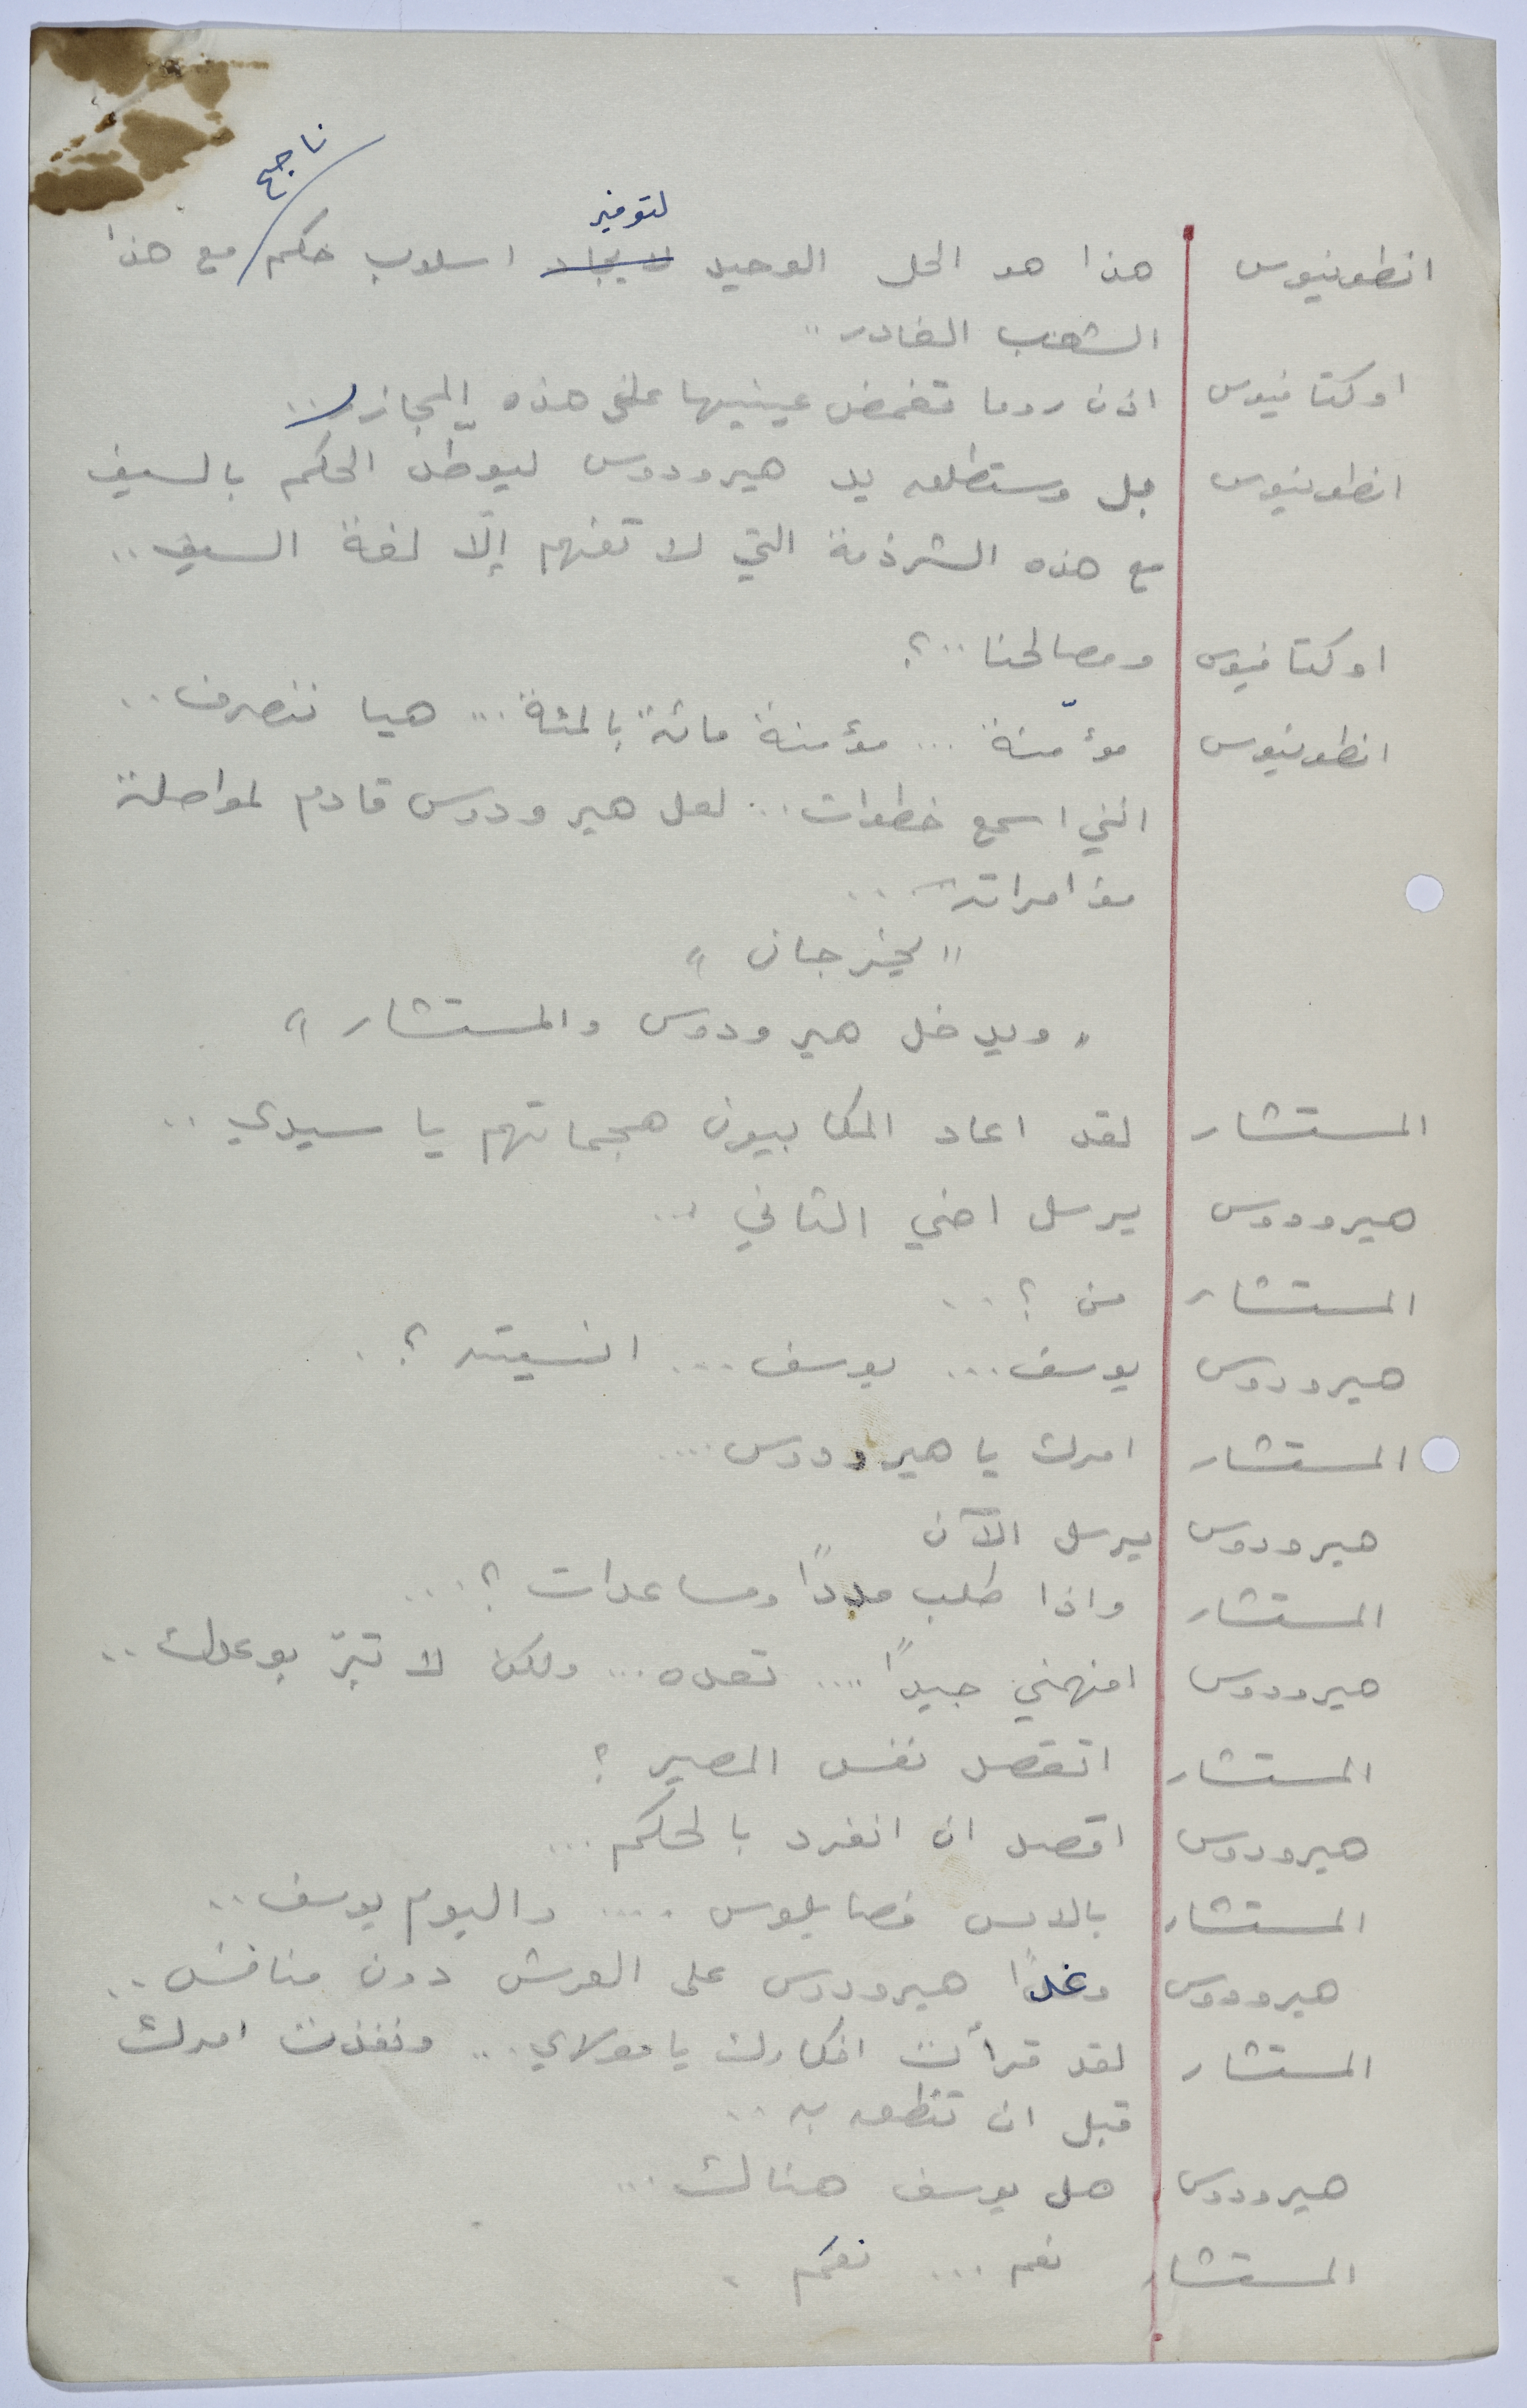 ناجح
لتوفير
انطونيوس هذا هو الحل الوحيد لايجاد اسلوب حكم مع هذا
الشعب الغادر ..
اوكتافيوس اذن روما تغمض عينيها على هذه المجازر ..
انطونيوس بل وستطلق يد هيرودوس ليوطد الحكم بالسيف
مع هذه الشرذمة التي لا تفهم إلّا لغة السيف ..
اوكتافيوس ومصالحنا ..؟
انطونيوس مؤمّنة ... مؤمنة مائة بالمئة ... هيا ننصرف ..
انني اسمع خطوات ... لعل هيرودوس قادم لمواصلة
مؤامراته ..
" يخرجان "
" ويدخل هيرودوس والمستشار "
المستشار لقد اعاد المكابيون هجماتهم يا سيدي ..
هيرودوس يرسل اخي الثاني ...
المستشار من ؟ ..
هيرودوس يوسف ... يوسف ... انسيته ؟ .
المستشار امرك يا هيرودوس ....
هيرودوس يرسل الآن
المستشار واذا طلب مددًا ومساعدات ؟ ...
هيرودوس افهمني جيدًا .... تعده ... ولكن لا تبرّ بوعدك ..
المستشار اتقصد نفس المصير ؟
هيرودوس اقصد ان انفرد بالحكم ...
المستشار بالامس فصايلوس .... واليوم يوسف ..
هيرودوس وغدًا هيرودوس على العرش دون منافس ..
المستشار لقد قرأت افكارك يا مولاي ... ونفذت امرك
قبل ان تنطق به ..
هيرودوس هل يوسف هنالك ...
المستشار نعم ... نعم .